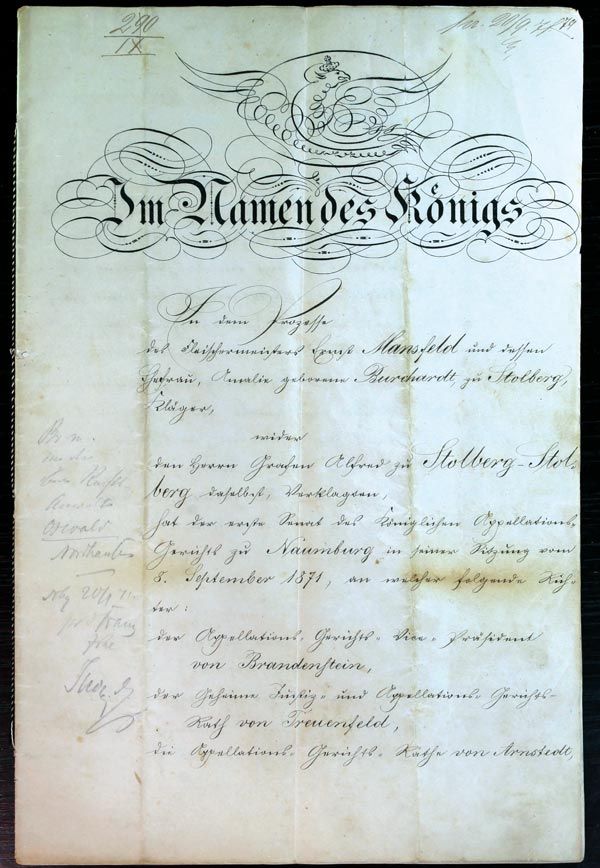 290
IX
Im Namen des Königs
In dem Prozesse
des Fleischermeisters Ernst Mansfeld und dessen
Ehefrau, Amalie geborene Burchardt, zu Stolberg,
Kläger,
wider
den Herrn Grafen Alfred zu Stolberg-Stol-
berg daselbst, Verklagten,
hat der erste Senat des Königlichen Appellations-
Gerichts zu Naumburg in seiner Sitzung vom
8. September 1871, an welcher folgende Rich-
ter:
der Appellations-Gerichts-Vice-Präsident
von Brandenstein,
der Geheime Justiz- und Appellations-Gerichts-
Rath von Treuenfeld,
die Appellations-Gerichts-Räthe von Arnstedt,
Oswald